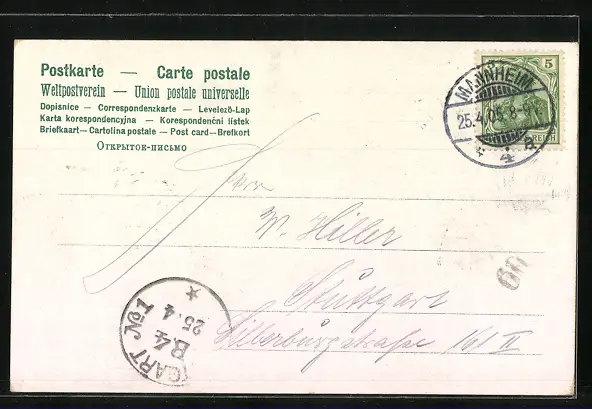 Postkarte — Carte postale
Weltpostverein — Union postale universelle
Dopisnice — Correspondenzkarte — Levelező-Lap
Karta korespondencyjna — Korespondenční lístek
Briefkaart — Cartolina postale — Post card — Brefkort
Открытое-письмо
5
REICH
MANNHEIM
25.4.05. 8-9
* 4 a
Herrn
W. Hiller
Stuttgart
Silberburgstraße 161 II
60
GART No 1
25.4
4
B